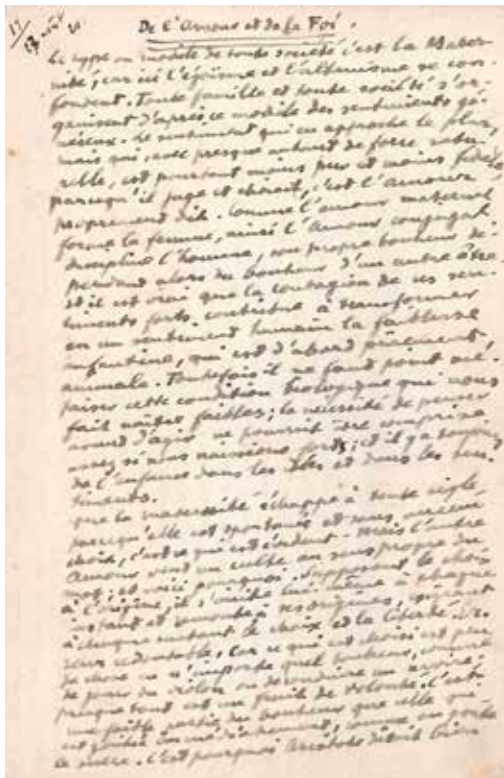 De l'Amour et de la Foi.
Le type ou modèle de toute société c'est la Mater-
nité, car ici l'égoïsme et l'altruisme se con-
fondent. Toute famille et toute société s'or-
ganisent d'après ce modèle des sentiments gé-
néreux. Le sentiment qui en approche le plus,
mais qui, avec presque autant de force natu-
relle, est pourtant moins pur et moins fidèle
parcequ'il juge et choisit, c'est l'amour
proprement dit. Comme l'amour maternel
forme la femme, ainsi l'Amour conjugal
discipline l'homme, son propre bonheur dé-
pendant alors du bonheur d'un autre être.
Et il est vrai que la contagion de ces sen-
timents forts contribue à transformer
en un sentiment humain la faiblesse
enfantine, qui est d'abord purement
animale. Toutefois il ne faut point mé-
priser cette condition biologique qui nous
fait naître faibles; la nécessité de penser
avant d'agir ne pourrait être comprise
assez si nous naissions forts; et il y a toujours
de l'enfance dans les idées et dans les sen-
timents.
Que la maternité échappe à toute règle
parcequ'elle est spontanée et sans aucun
choix, c'est ce qui est évident. Mais l'autre
Amour veut un culte, au sens propre du
mot; et voici pourquoi. Supposant le choix
à l'origine, il s'imite lui-même à chaque
instant et remonte à ses origines,
à chaque instant le choix et la liberté.
redoutable, car ce qui est choisi est peu
de chose en n'importe quel bonheur, comme
de jouer du violon ou de conduire un navire;
presque tout est un fruit de volonté. C'est
une faible partie du bonheur que celle qui
est goûtée comme on goûte
le sucre. C'est pourquoi Aristote disait bien